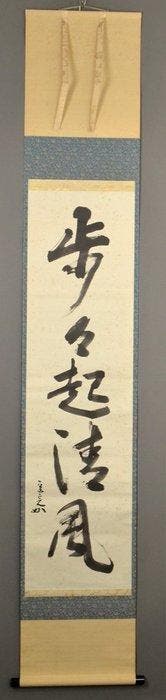 歩々起清風